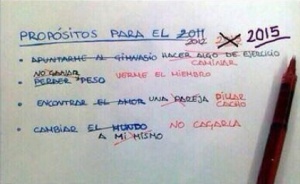 PROPÓSITOS PARA EL 2011
2012 2015
APUNTARME AL GIMNASIO HACER ALGO DE EJERCICIO
CAMINAR
NO GANAR
PERDER PESO VERME EL MIEMBRO
ENCONTRAR EL AMOR UNA PAREJA PILLAR
CACHO
CAMBIAR EL MUNDO NO CAGARLA
A MÍ MISMO